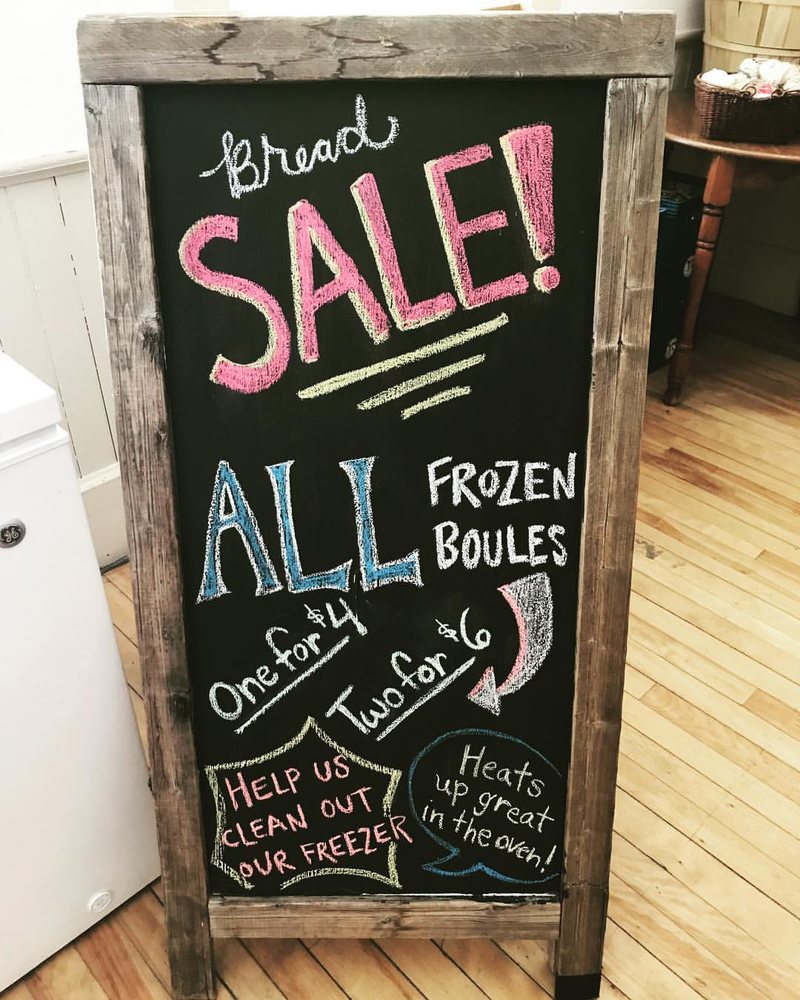 Bread
SALE!
ALL
FROZEN
BOULES
One for $4
Two for $6
HELP US
CLEAN OUT
OUR FREEZER
Heats
up great
in the oven!